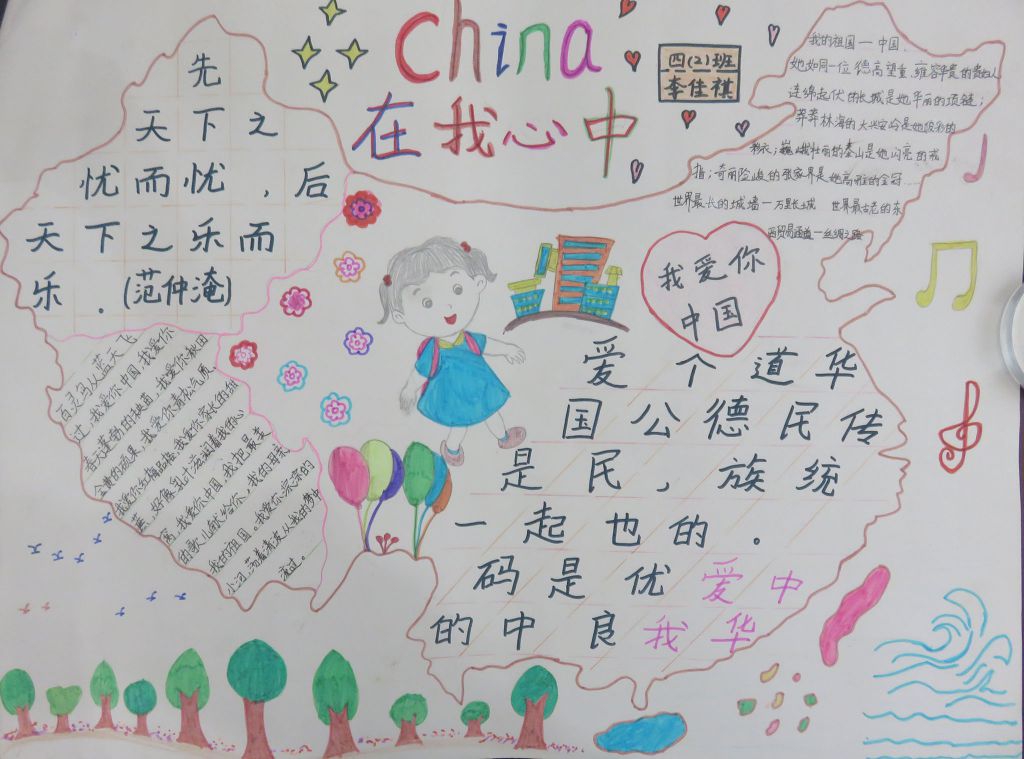 China
在我心中
四(2)班
李佳祺
先
天下之
忧而忧,后
天下之乐而
乐.(范仲淹)
我的祖国一中国,
她如同一位德高望重、雍容华贵的
连绵起伏的长城是她华丽的项链;
莽莽林海的大兴安岭是她的
巍峨壮丽的泰山是她闪亮的戒
指;奇丽险峻的张家界是她高雅的金冠……
世界最长的城墙一万里长城 世界最古老的东
西贸易通道一丝绸之路
我爱你
中国
百灵鸟从蓝天飞
过,我爱你中国,我爱你
春天蓬勃的秧苗,我爱你秋田
金黄的硕果,我爱你青松气质
我爱你红梅品格,我爱你家乡的甜
蔗,好像乳汁滋润着我的心
窝,我爱你中国,我把最美
的歌儿献给你,我的母亲
我的祖国。我爱你淙淙的
小河,荡着清波从我的梦中
流过。
爱 个 道 华
国 公 德 民 传
是 民 , 族 统
一 起 也 的 .
码 是 优 爱 中
的 中 良 我 华